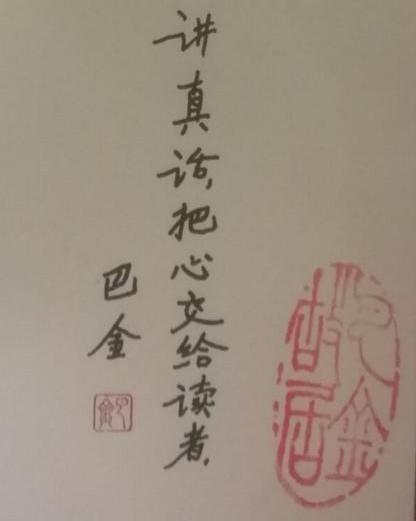 讲真话,把心交给读者.
巴金
巴金
巴金
故居